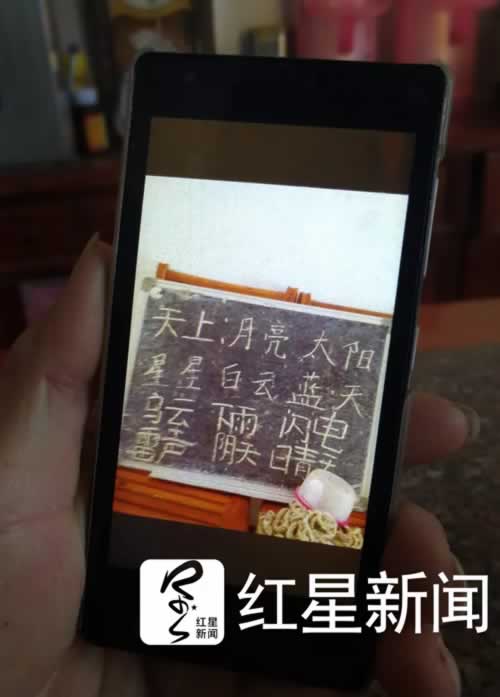 天上:月亮 太阳
星星 白云 蓝天
乌云 下雨 闪电
雷声 阴天 晴天
红星
新闻
红星新闻